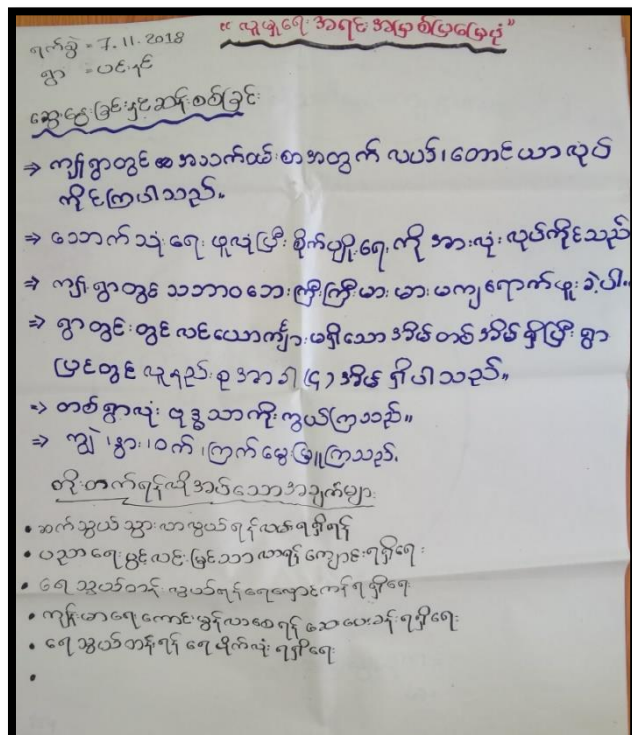 "လူမှုရေး အရင်းအမြစ်ပြမြေပုံ"
ရက်စွဲ = 7.11.2018
ရွာ = ပင်းနင်
ဆွေးနွေးခြင်းနှင့်ဆန်းစစ်ခြင်း
⇒ ကျွန်ုပ်ရွာတွင် အသက်မွေးဝမ်းစာအတွက် လယ်၊ တောင်ယာ လုပ်
ကိုင်ကြပါသည်။
⇒ သောက်သုံးရေ ဖူလုံပြီး စိုက်ပျိုးရေး ကို အားလုံး လုပ်ကိုင်သည်
⇒ ကျွန်ုပ်ရွာတွင် သဘာဝဘေးကြီးကြီးမားမား မကျရောက်ဖူးခဲ့ပါ။
⇒ ရွာတွင်းတွင် လင်ယောကျ်ားမရှိသော အိမ် တစ်အိမ် ရှိပြီး ရွာ
ပြင်တွင် လူနည်းစု အခါ (၄) အိမ် ရှိပါသည်။
⇒ တစ်ရွာလုံး ဗုဒ္ဓဘာသာကိုးကွယ်ကြသည်။
⇒ ကျွဲ၊ နွား၊ ဝက်၊ ကြက်မွေးမြူကြသည်.
တိုးတက်ရန်လိုအပ်သောအချက်များ
• ဆက်သွယ်သွားလာလွယ်ရန်လမ်းရရှိရန်
• ပညာရေးပွင့်လင်းမြင်သာလာရန် ကျောင်းရရှိရေး
• ရေသွယ်တန်းလွယ်ရန်ရေလှောင်ကန်ရရှိရေး
• ကျန်းမာရေးကောင်းမွန်လာစေရန် ဆေးပေးခန်းရရှိရေး
• ရေသွယ်တန်းရန် ရေပိုက်လုံး ရရှိရေး